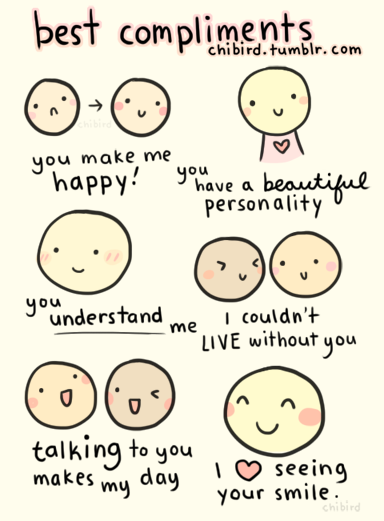 best compliments
chibird.tumblr.com
chibird
you make me
happy!
you
have a beautiful
personality
you
understand me
I couldn't
LIVE without you
talking to you
makes my day
I ♥ seeing
your smile.
chibird